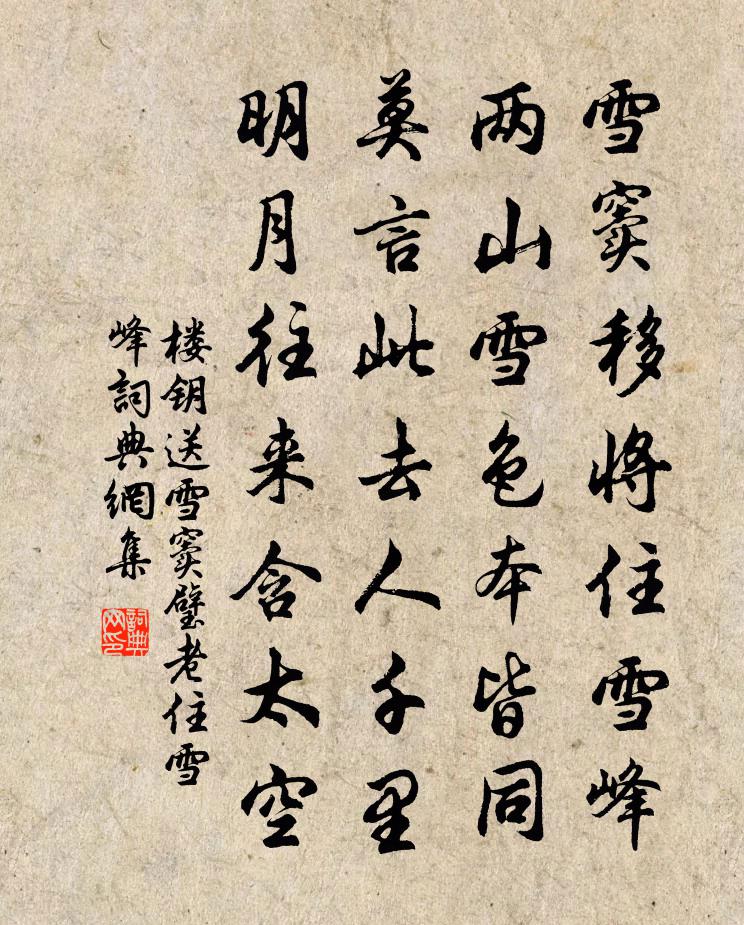 雪窦移将住雪峰
两山雪色本皆同
莫言此去人千里
明月往来含太空
楼钥送雪窦璧老住雪
峰詞典網集
詞典
网印